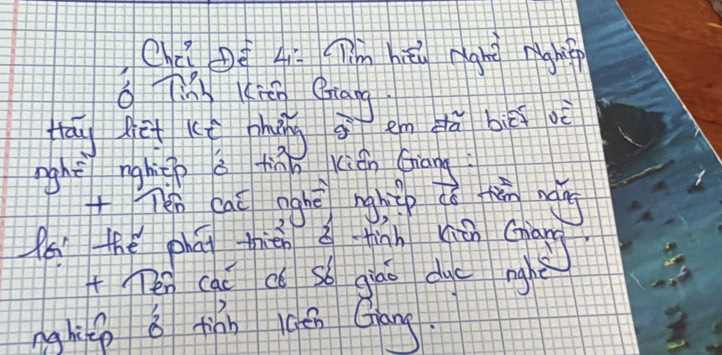 Chủ Đề 4: Tìm hiểu Nghề Nghiệp
ở Tỉnh Kiên Giang.
Hãy liệt kê những gì em đã biết về
nghề nghiệp ở tỉnh Kiên Giang:
+ Tên các nghề nghiệp có tiềm năng
lợi thế phát triển ở tỉnh Kiên Giang.
+ Tên các cơ sở giáo dục nghề
nghiệp ở tỉnh Kiên Giang.